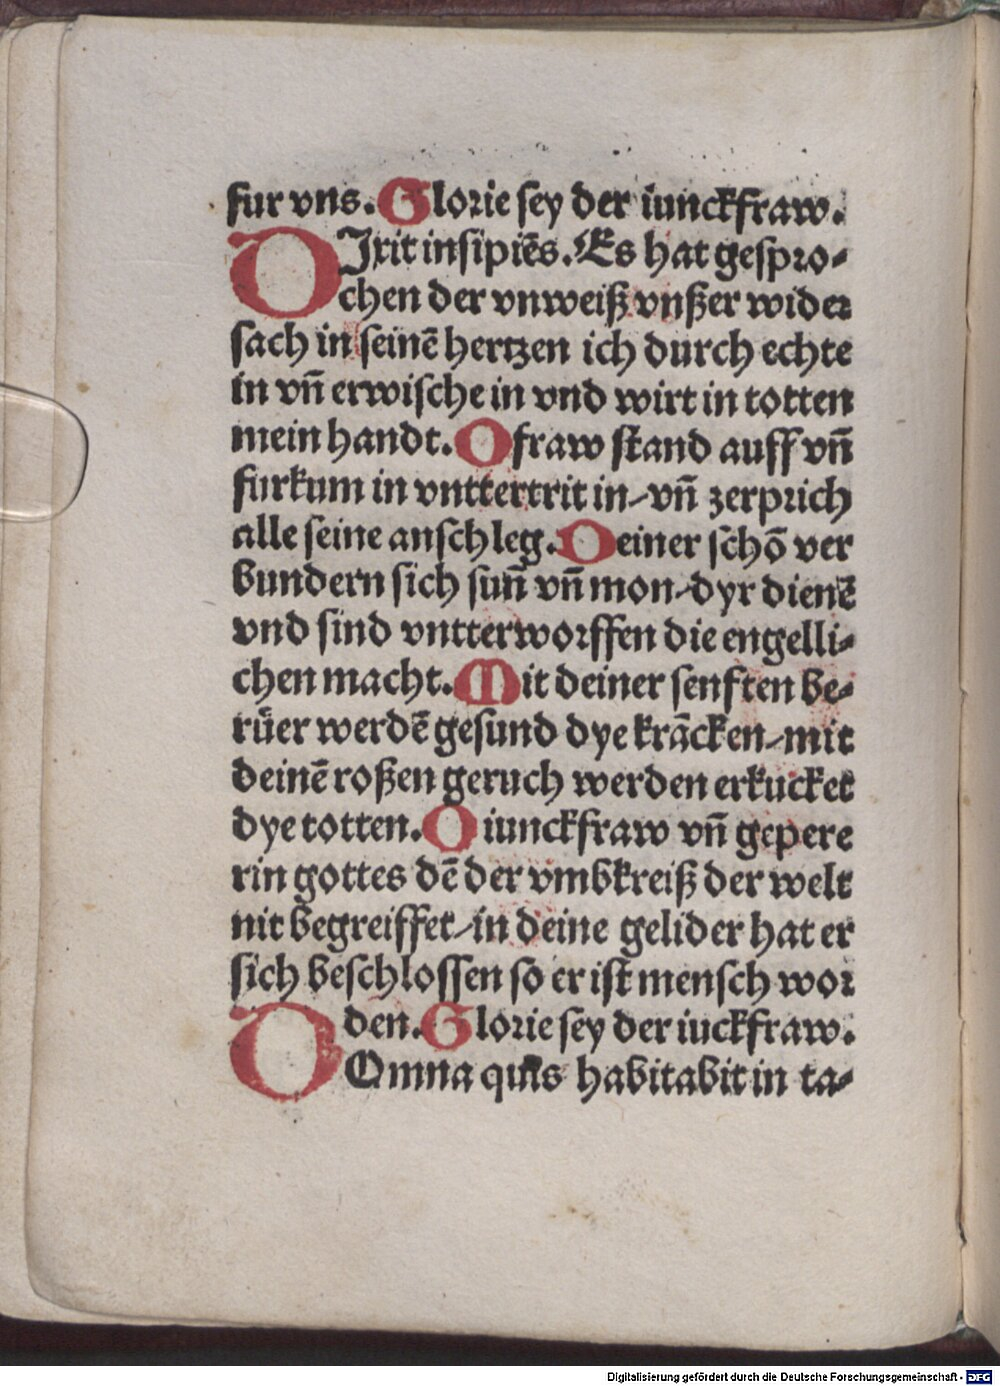 fur vns. Glorie sey der iunckfraw.
DIxit insipiēs. Es hat gespro-
chen der vnweiß vnßer wider
sach in seinē hertzen ich durch echte
in vn̄ erwische in vnd wirt in totten
mein handt. O fraw stand auff vn̄
furkum in vnttertrit in/vn̄ zerprich
alle seine anschleg. Deiner schō ver
bundern sich sun̄ vn̄ mon/dyr dienē
vnd sind vntterworffen die engelli-
chen macht. Mit deiner senften be-
rüer werdē gesund dye krācken/mit
deinē roßen geruch werden erkucket
dye totten. O iunckfraw vn̄ gepere
rin gottes dē der vmbkreiß der welt
nit begreiffet/in deine gelider hat er
sich beschlossen so er ist mensch wor
den. Glorie sey der iuckfraw.
DOmna quis habitabit in ta-
Digitalisierung gefördert durch die Deutsche Forschungsgemeinschaft - DFG